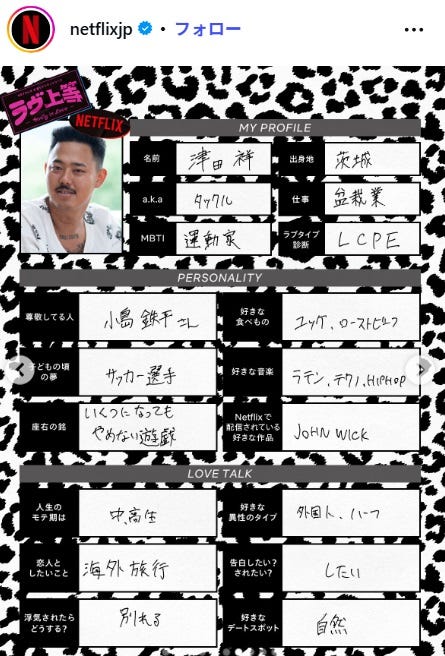 netflixjp
フォロー
ラヴ上等
NETFLIX
MY PROFILE
名前 津田 祥 出身地 茨城
a.k.a タックル 仕事 盆栽業
MBTI 運動家 ラブタイプ
診断 LCPE
PERSONALITY
尊敬してる人 小島 鉄平さん 好きな
食べもの ユッケ、ローストビーフ
子どもの頃
の夢 サッカー選手 好きな音楽 ラテン、テクノ、HIPHOP
座右の銘 いくつになっても
やめない遊戯 Netflixで
配信されている
好きな作品 JOHN WICK
LOVE TALK
人生の
モテ期は 中、高生 好きな
異性のタイプ 外国人、ハーフ
恋人と
したいこと 海外旅行 告白したい?
されたい? したい
浮気されたら
どうする? 別れる 好きな
デートスポット 自然